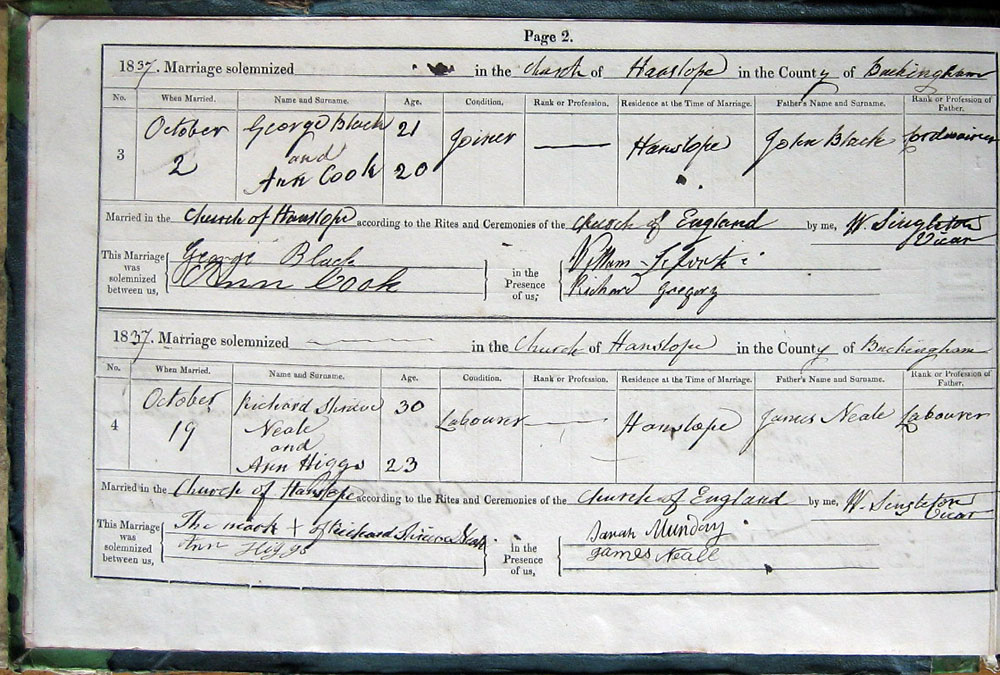 Page 2.
1837. Marriage solemnized in the Church of Hanslope in the County of Buckingham
No. When Married. Name and Surname. Age. Condition. Rank or Profession. Residence at the Time of Marriage. Father's Name and Surname. Rank or Profession of Father.
3 October 2 George Black and Ann Cook 21 20 Joiner Hanslope John Black Cordwainer
Married in the Church of Hanslope according to the Rites and Ceremonies of the Church of England by me, W. Singleton Vicar
This Marriage was solemnized between us, George Black Ann Cook in the Presence of us, William Richard Gregory
1837. Marriage solemnized in the Church of Hanslope in the County of Buckingham
No. When Married. Name and Surname. Age. Condition. Rank or Profession. Residence at the Time of Marriage. Father's Name and Surname. Rank or Profession of Father.
4 October 19 Richard Neale and Ann Higgs 30 23 Labourer Hanslope James Neale Labourer
Married in the Church of Hanslope according to the Rites and Ceremonies of the Church of England by me, W. Singleton Vicar
This Marriage was solemnized between us, The mark X of Richard Neale Ann Higgs in the Presence of us, Sarah Munday James Neale